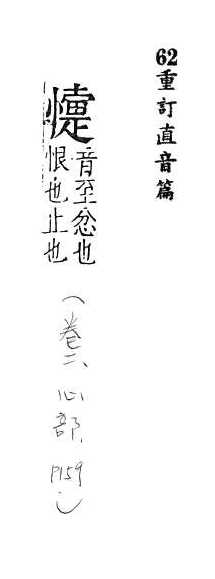 62重訂直音篇
懥音至忿也
恨也止也
(卷二、心部、P159)